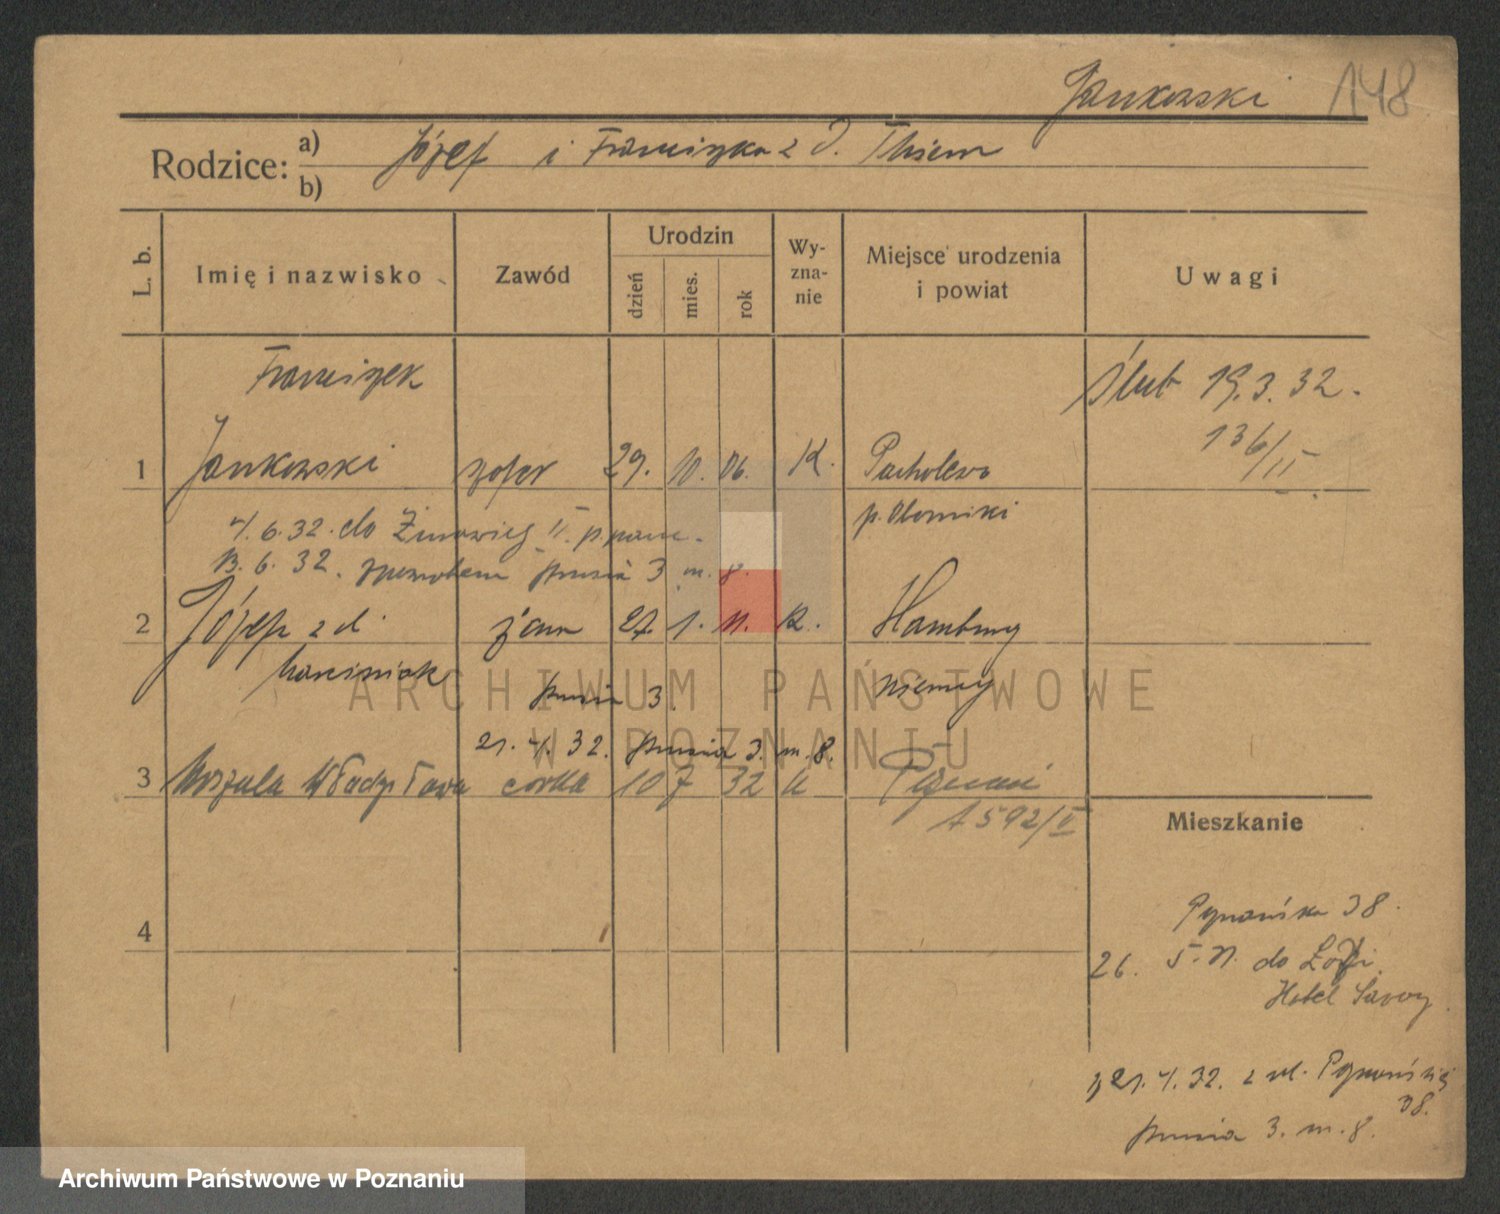 Jankowski 148
Rodzice: a) Józef i Franciszka z d. Thiem
b)
L. b. Imię i nazwisko Zawód Urodzin dzień mies. rok Wyzna-nie Miejsce urodzenia i powiat Uwagi
Franciszek Ślub 19.3.32.
136/II
1 Jankowski szofer 29. 10. 06. K. Pacholewo
p. Oborniki
4.6.32. do II. p.
13.6.32. z powrotem 3 m. 8.
2 z d. żona 27. 1. 11. K. Hamburg
Marciniak 3. Niemcy
21.4.32. 3. m. 8.
3 Urszula Władysława córka 10 7 32 K Poznań
A 592/II
Mieszkanie
4
Poznańska 38.
26. 5. 31. do Łodzi
Hotel Savoy
21.4.32. z ul. Poznańskiej
38.
3. m. 8.
ARCHIWUM PAŃSTWOWE
W POZNANIU
Archiwum Państwowe w Poznaniu